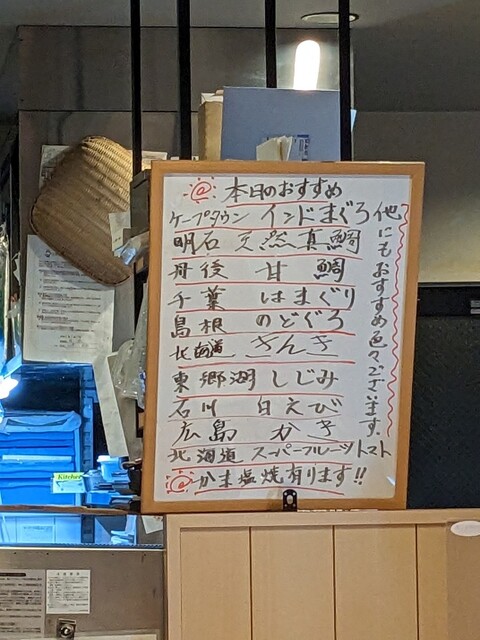 本日のおすすめ
ケープタウン インドまぐろ
明石 天然真鯛
丹後 甘鯛
千葉 はまぐり
島根 のどぐろ
北海道 きんき
東郷湖 しじみ
石川 白えび
広島 かき
北海道 スーパーフルーツトマト
かま塩焼有ります!!
他にもおすすめ色々ございます。
Kitchen